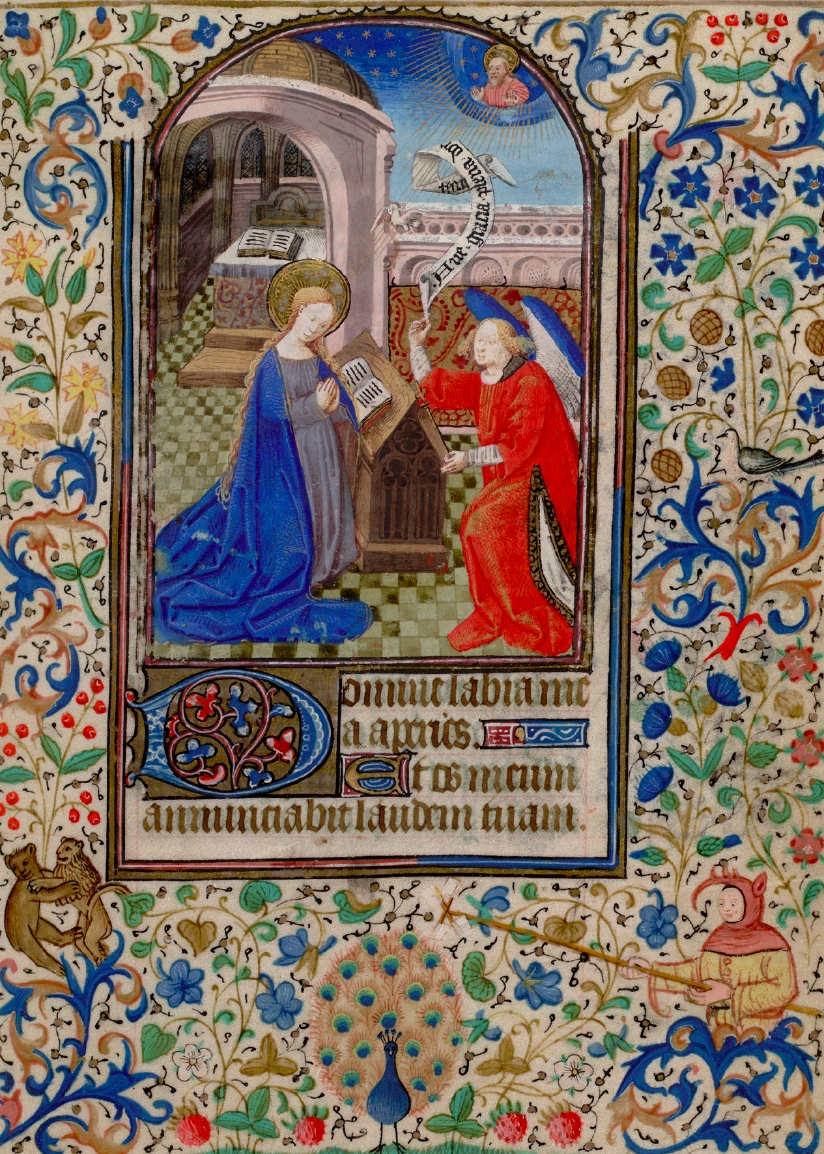 Ave gracia plena
Domine labia me
a aperies.
Et os meum
annunciabit laudem tuam.